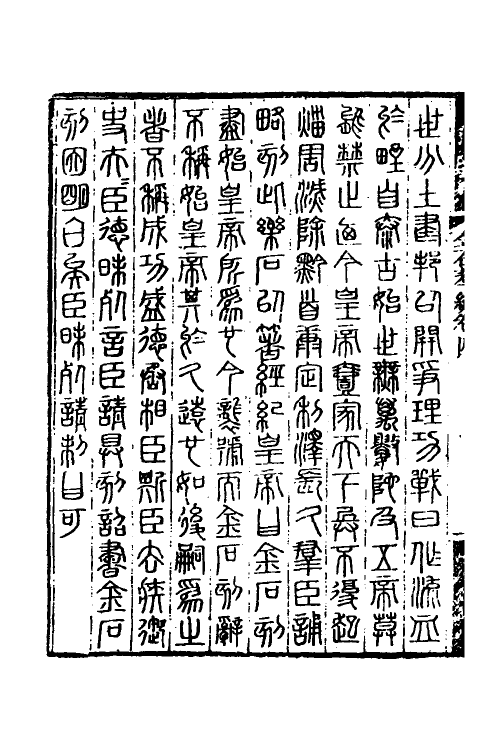 世分土建邦以開爭理功戰日作流血
於野自泰古始世無萬數陀及五帝莫
能禁止廼今皇帝壹家天下兵不復起
災害滅除黔首康定利澤長久群臣誦
略刻此樂石以著經紀皇帝曰金石刻
盡始皇帝所為也今襲號而金石刻辭
不稱始皇帝其於久遠也如後嗣為之
者不稱成功盛德丞相臣斯臣去疾御
史夫臣德昧死言臣請具刻詔書金石
刻因明白矣臣昧死請制曰可